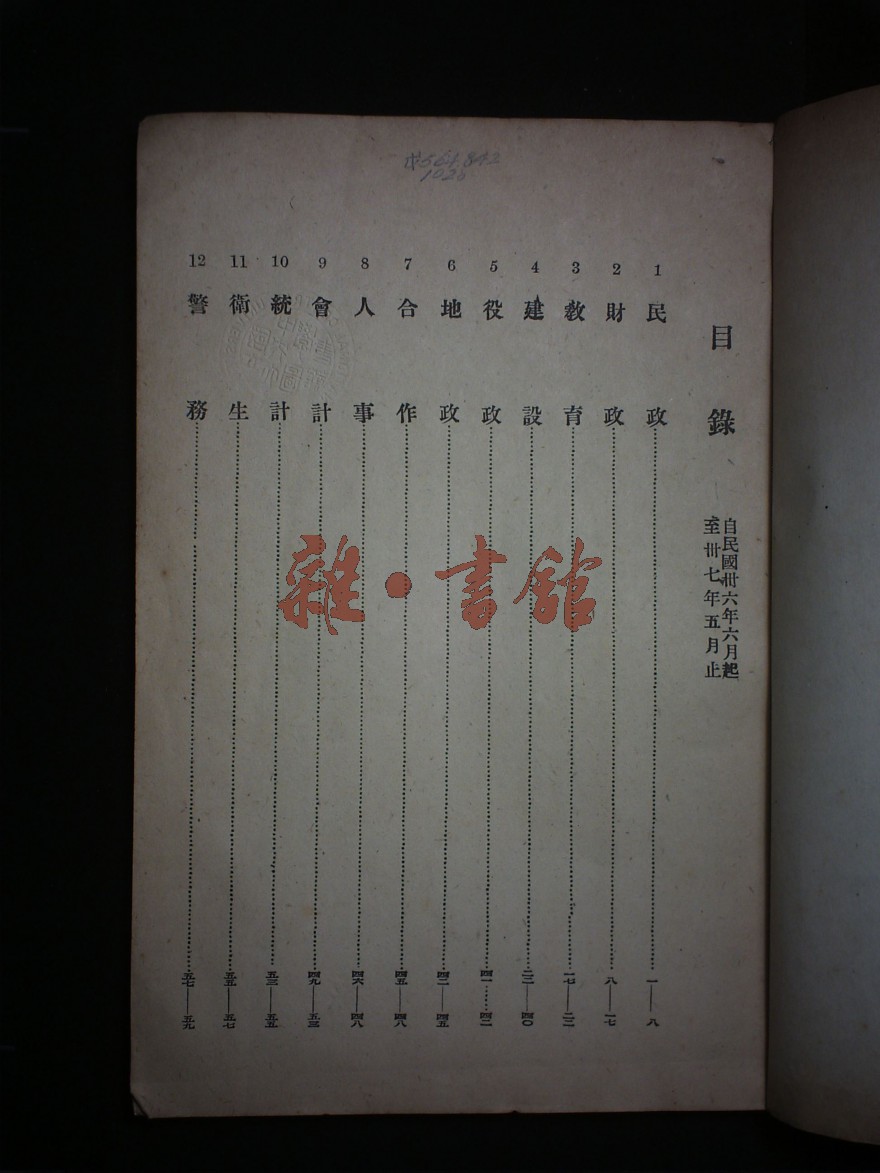 目錄
自民國卅六年六月起
至卅七年五月止
1 民政 一——八
2 財政 八——一七
3 教育 一七——二二
4 建設 二二——四〇
5 役政 四一……四二
6 地政 四二——四五
7 合作 四五——四八
8 人事 四六——四八
9 會計 四九——五三
10 統計 五三——五五
11 衛生 五五——五七
12 警務 五七——五九
雜·書館